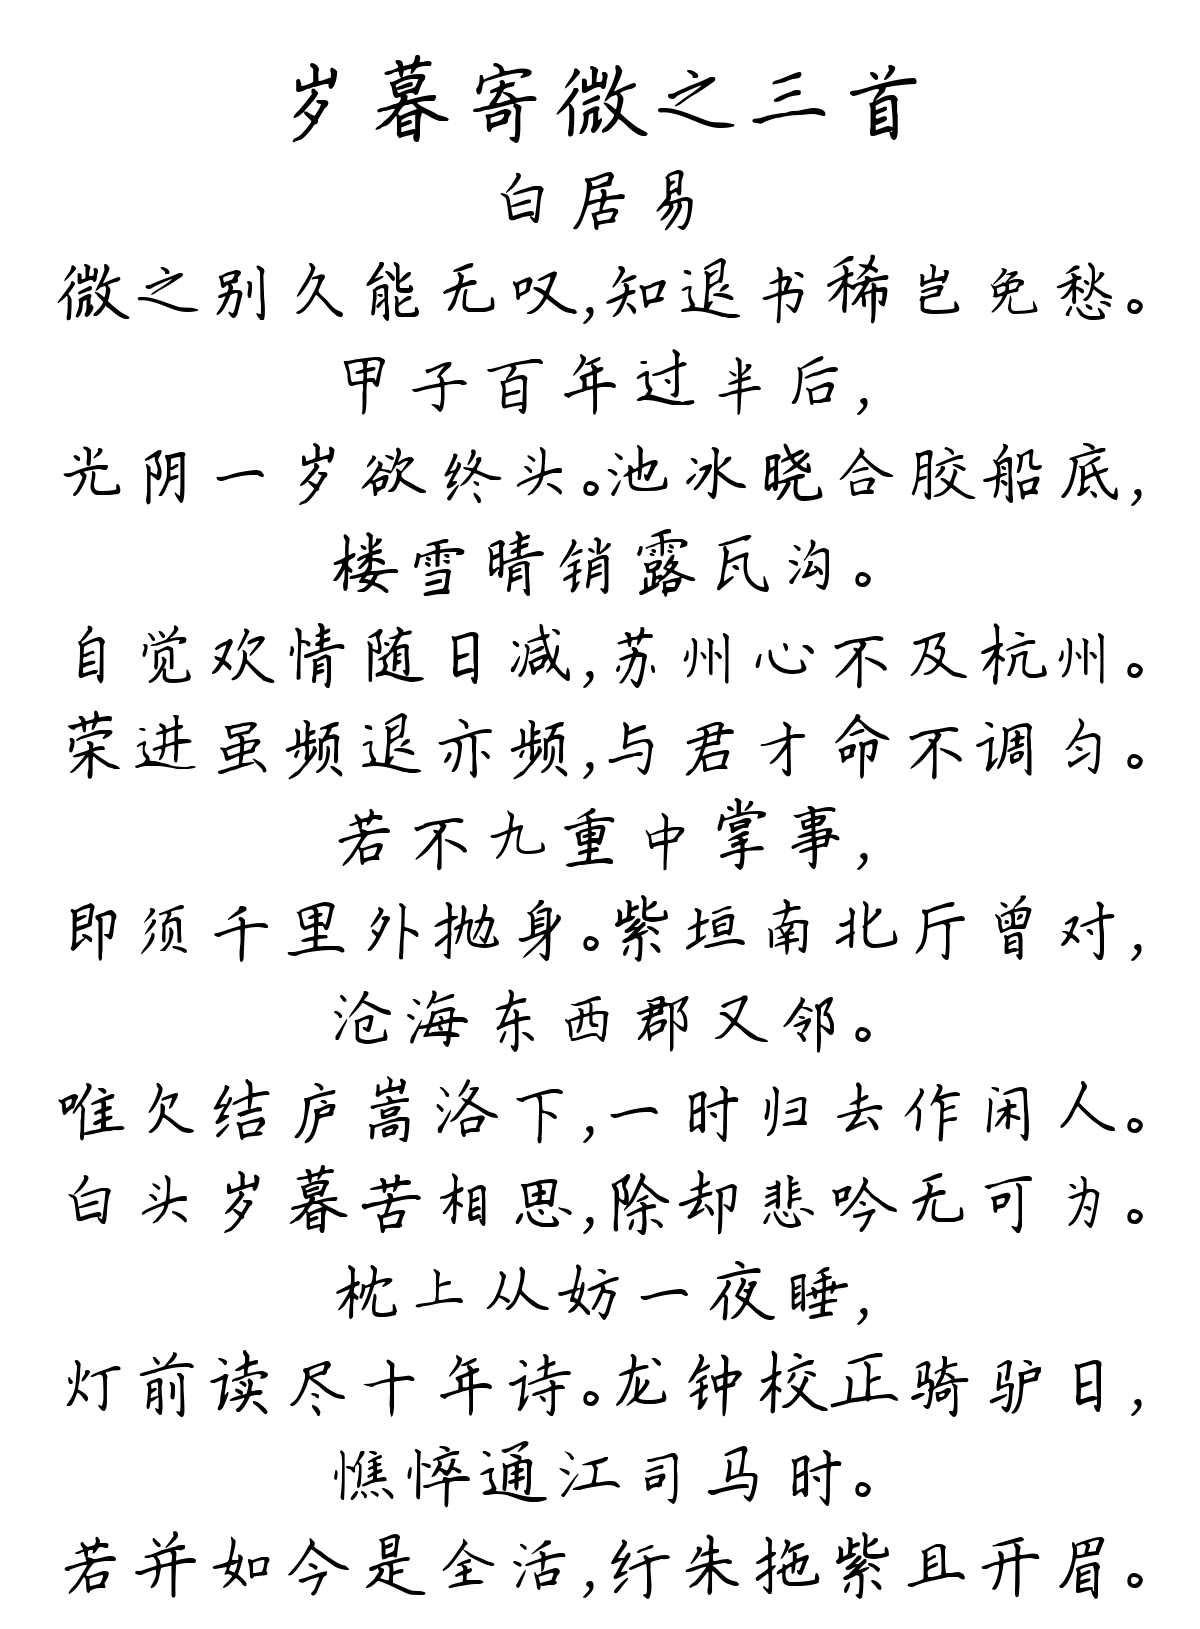 岁暮寄微之三首
白居易
微之别久能无叹,知退书稀岂免愁。
甲子百年过半后,
光阴一岁欲终头。池冰晓合胶船底,
楼雪晴销露瓦沟。
自觉欢情随日减,苏州心不及杭州。
荣进虽频退亦频,与君才命不调匀。
若不九重中掌事,
即须千里外抛身。紫垣南北厅曾对,
沧海东西郡又邻。
唯欠结庐嵩洛下,一时归去作闲人。
白头岁暮苦相思,除却悲吟无可为。
枕上从妨一夜睡,
灯前读尽十年诗。龙钟校正骑驴日,
憔悴通江司马时。
若并如今是全活,纡朱拖紫且开眉。